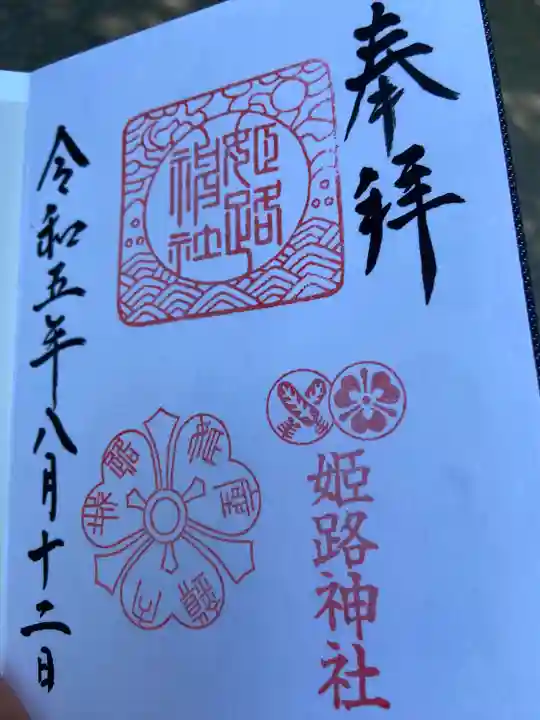 奉拝
姫路神社
姫路神社
令和五年八月十二日